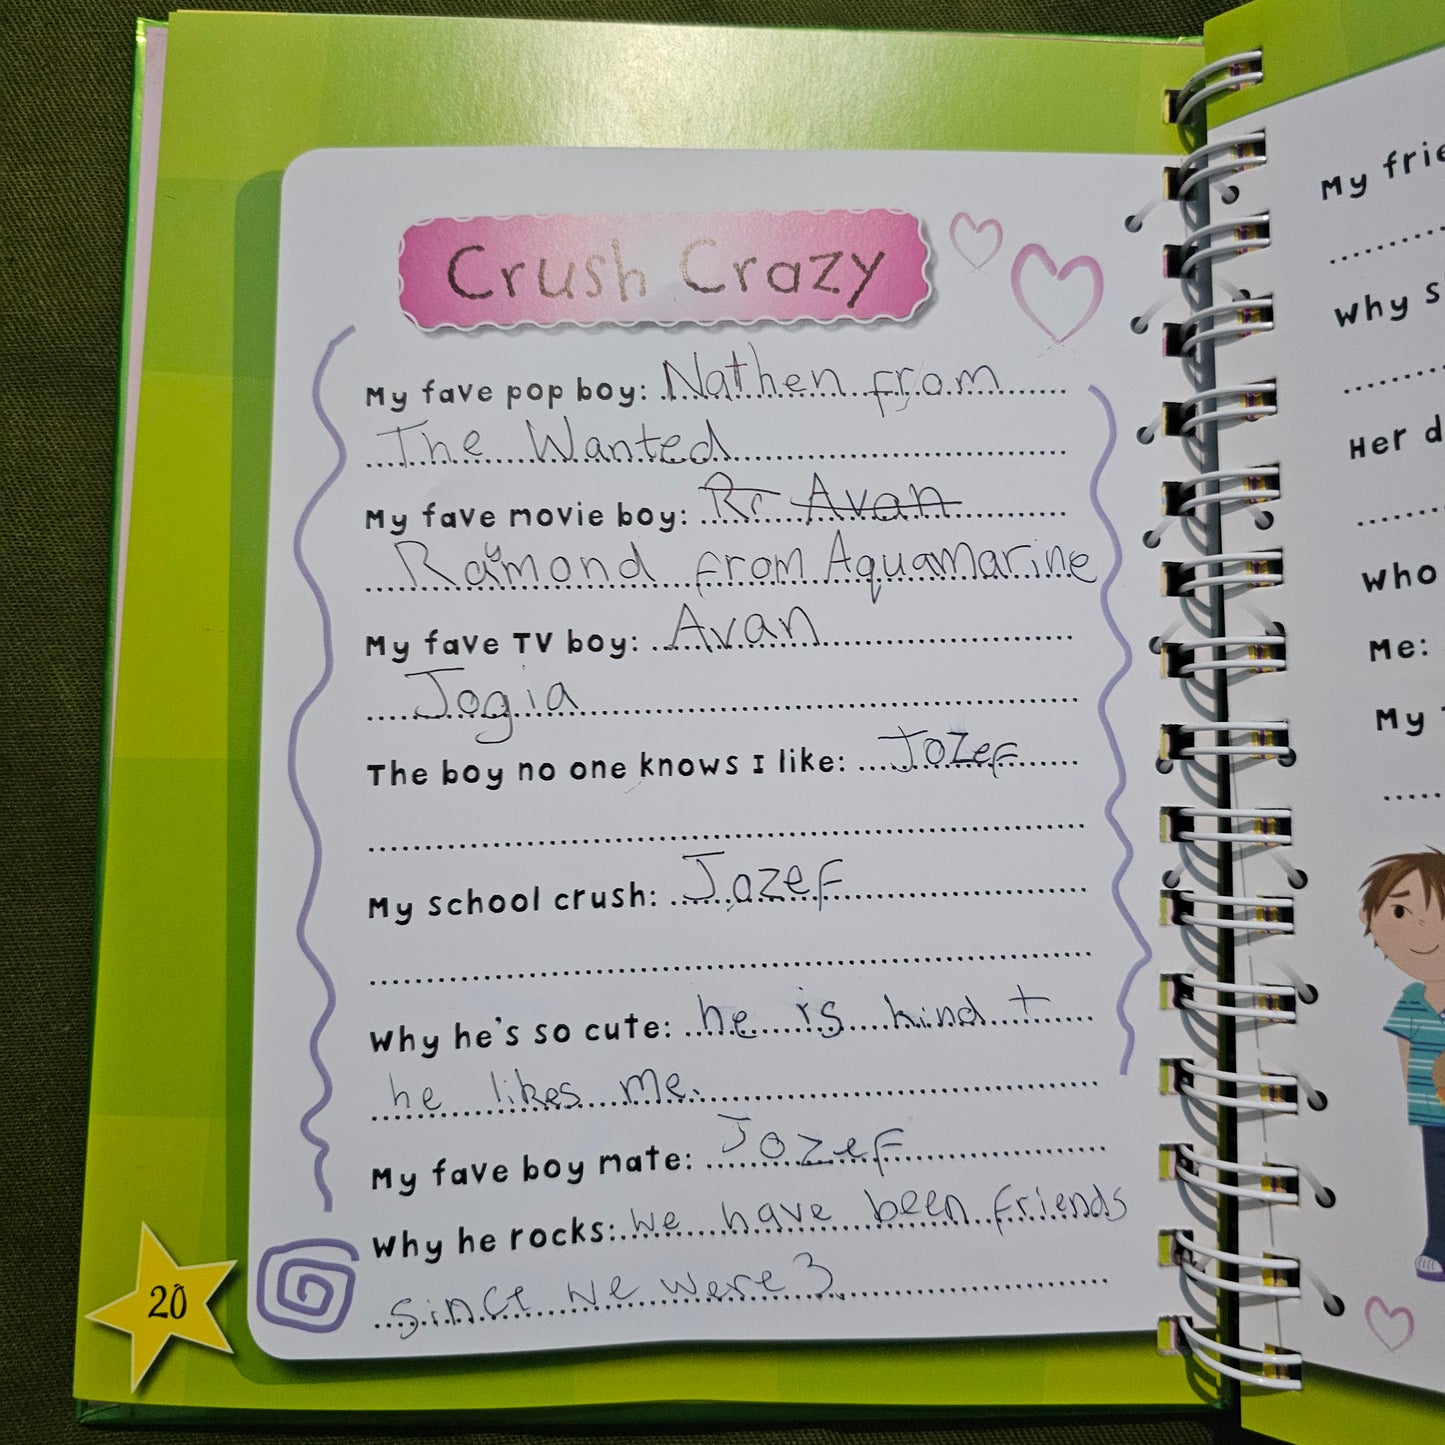 Crush Crazy
My fave pop boy: Nathen from
The Wanted
My fave movie boy: Rr Avan
Raymond from Aquamarine
My fave TV boy: Avan
Jogia
The boy no one knows I like: Jozef
My school crush: Jozef
Why he's so cute: he is kind +
he likes me.
My fave boy mate: Jozef
Why he rocks: we have been friends
since we were 3.
20
My frie
Why s
Her d
Who
Me:
My